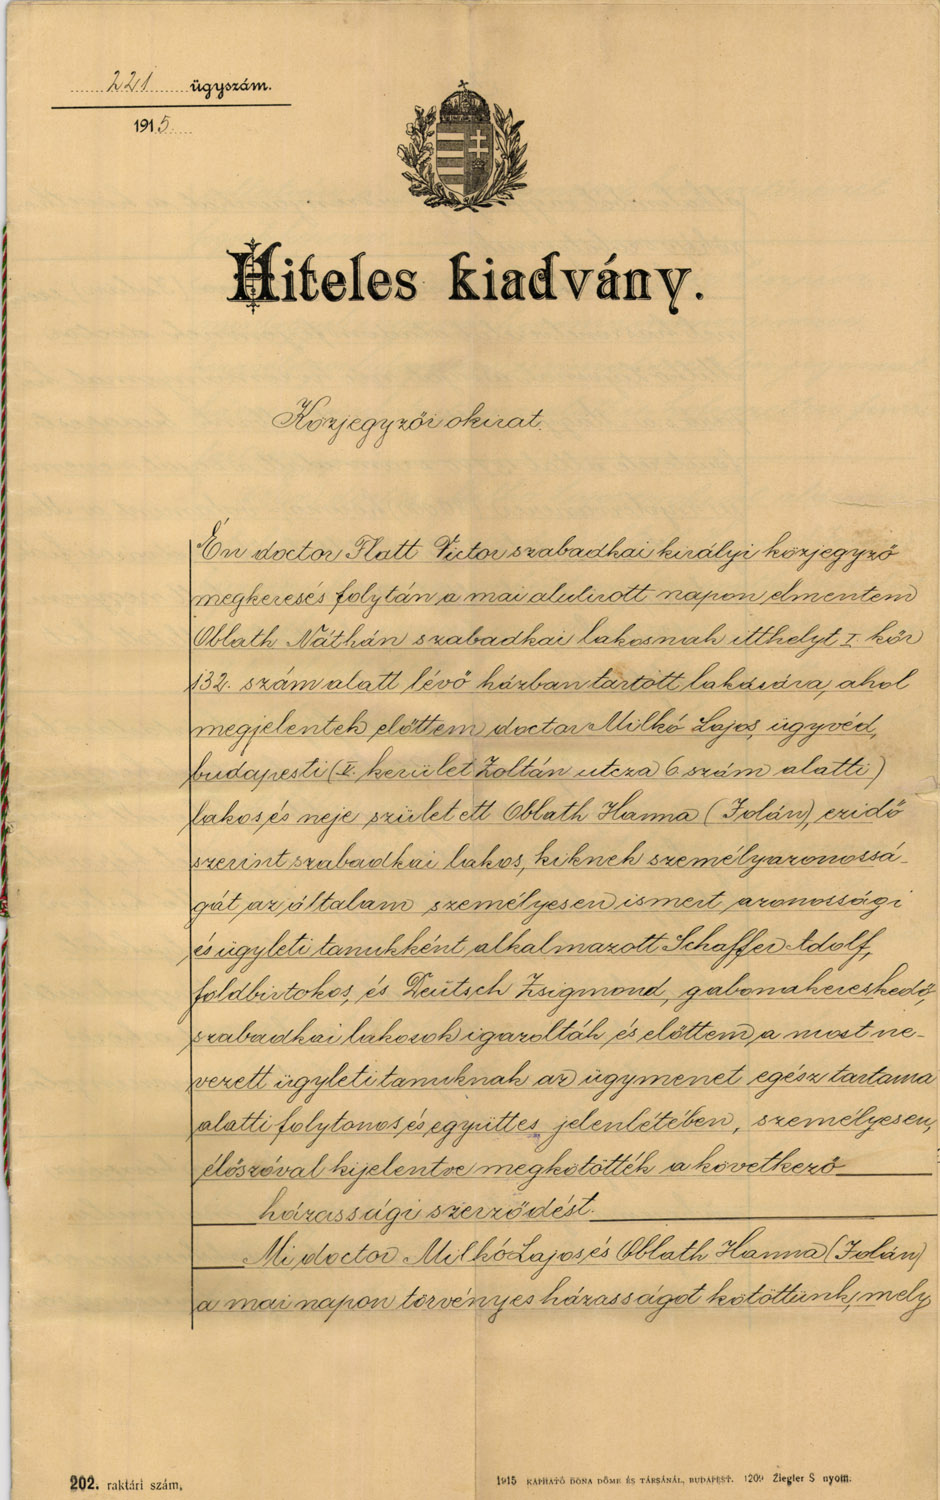 221 ügyszám.
1915.
Hiteles kiadvány.
Közjegyzői okirat.
Én doctor Flatt Victor szabadkai királyi közjegyző
megkeresés folytán a mai alulirott napon elmentem
Oblath Náthán szabadkai lakosnak itthelyt I. kör
132. szám alatt lévő házban tartott lakására, ahol
megjelentek előttem doctor Milkó Lajos, ügyvéd,
budapesti (V. kerület Zoltán utcza 6 szám alatti)
lakos és neje született Oblath Hanna (Jolán), ezidő
szerint szabadkai lakos, kiknek személyazonossá-
gát az általam személyesen ismert azonossági
és ügyleti tanukként alkalmazott Schaffer Adolf,
földbirtokos, és Deütsch Zsigmond, gabonakereskedő,
szabadkai lakosok igazolták és előttem a most ne-
vezett ügyleti tanuknak az ügymenet egész tartama
alatti folytonos és együttes jelenlétében, személyesen,
élőszóval kijelentve megkötötték a következő
házassági szerződést.
Mi doctor Milkó Lajos és Oblath Hanna (Jolán)
a mai napon törvényes házasságot kötöttünk, mely
202. raktári szám,
1915 KAPHATÓ DÓNA DÖME ÉS TÁRSÁNÁL, BUDAPEST. 1209 Ziegler S nyom.